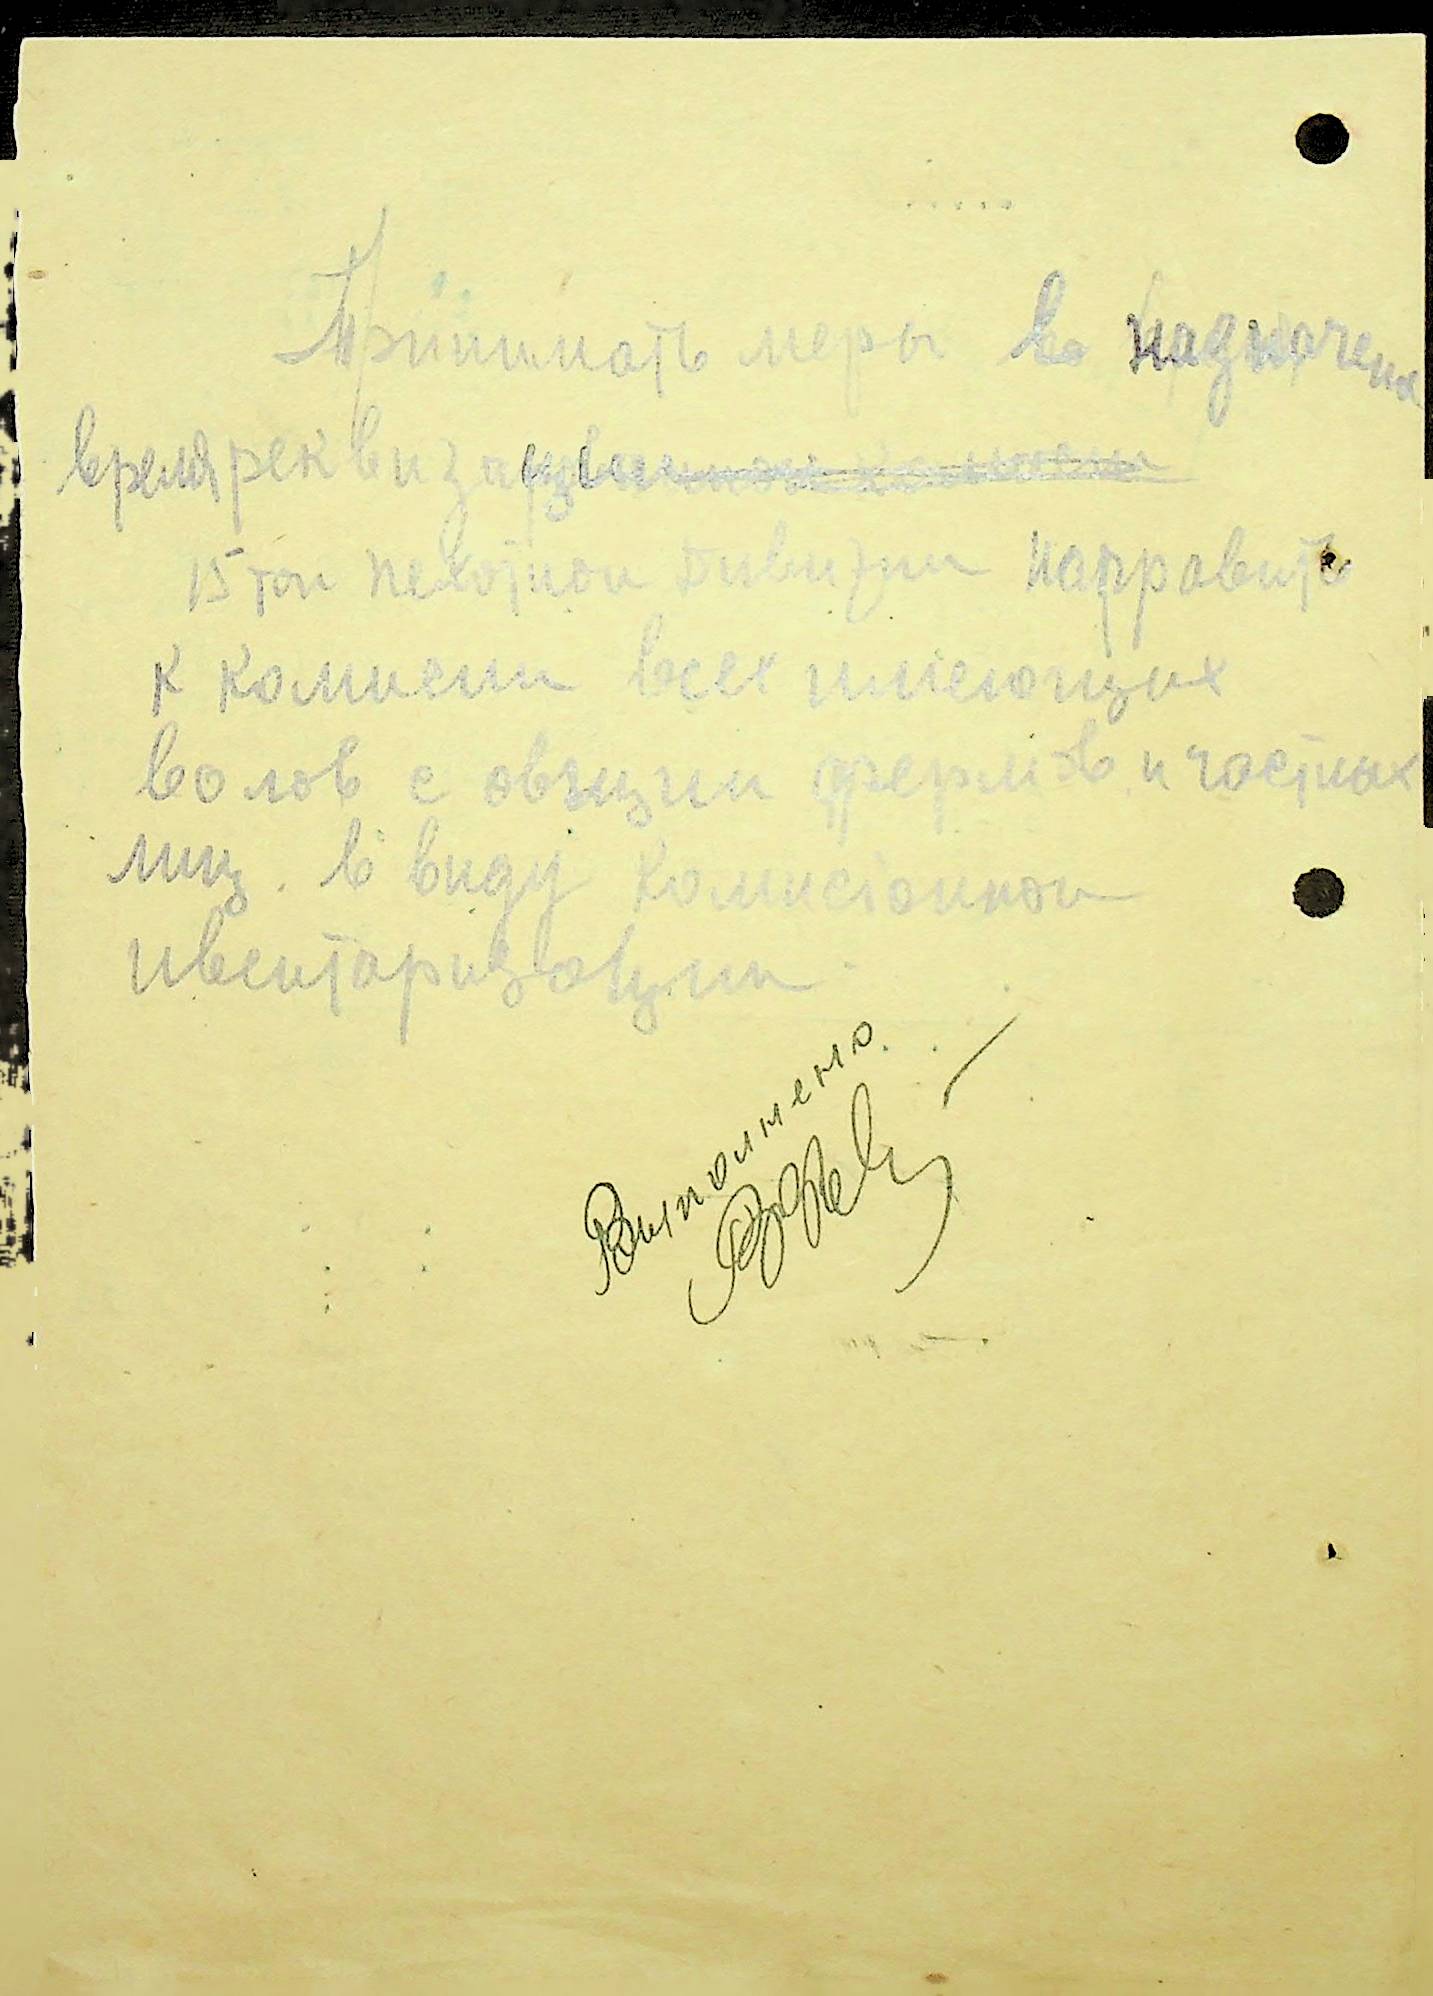 Приймать меры во назначеное
время реквизацион
15 той пехотной дивизии направить
к комисии всех имеющих
волов с овщин фермов и частных
лиц. в виду комисіонной
ивентаризации.
Выполнено.